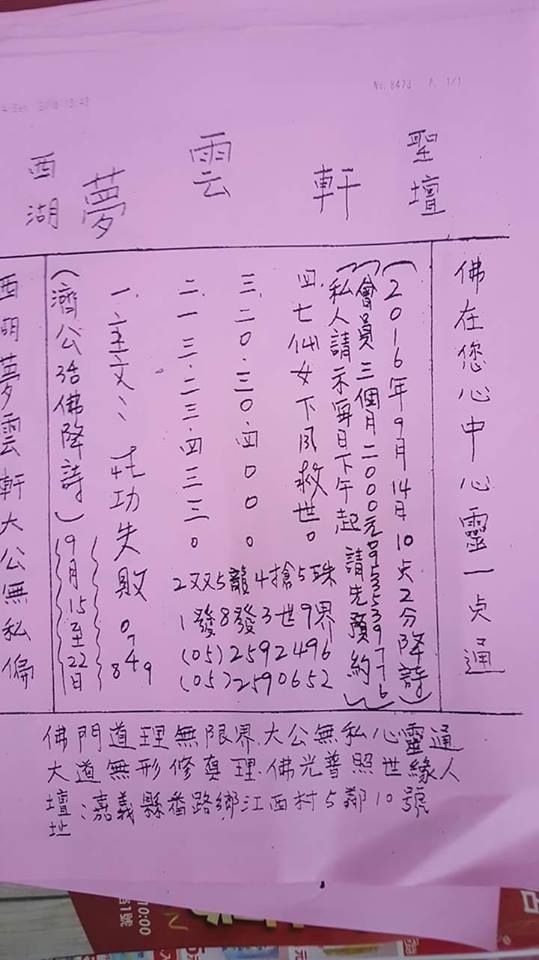 No. 8473 P. 1/1
西湖 夢 雲 軒 聖壇
西湖夢雲軒大公無私偏
(濟公活佛降詩) 9月15至22日
一.主文:耗功失敗 07489
二.一三.二三.四三三0
三.二0.三0.四000
四.七仙女下凡救世。
2双双5龍4搶5珠
1發8發3世9界
(05)2592496
(05)2590652
(私人請示每日下午起請先預約)
(會員三個月2000元0935539776)
(2016年9月14日10点2分降詩)
佛在您心中心靈一点通
佛門道理無限界.大公無私心靈通
大道無形修真理.佛光普照世緣人
壇址:嘉義縣番路鄉江西村5鄰10號
10:00